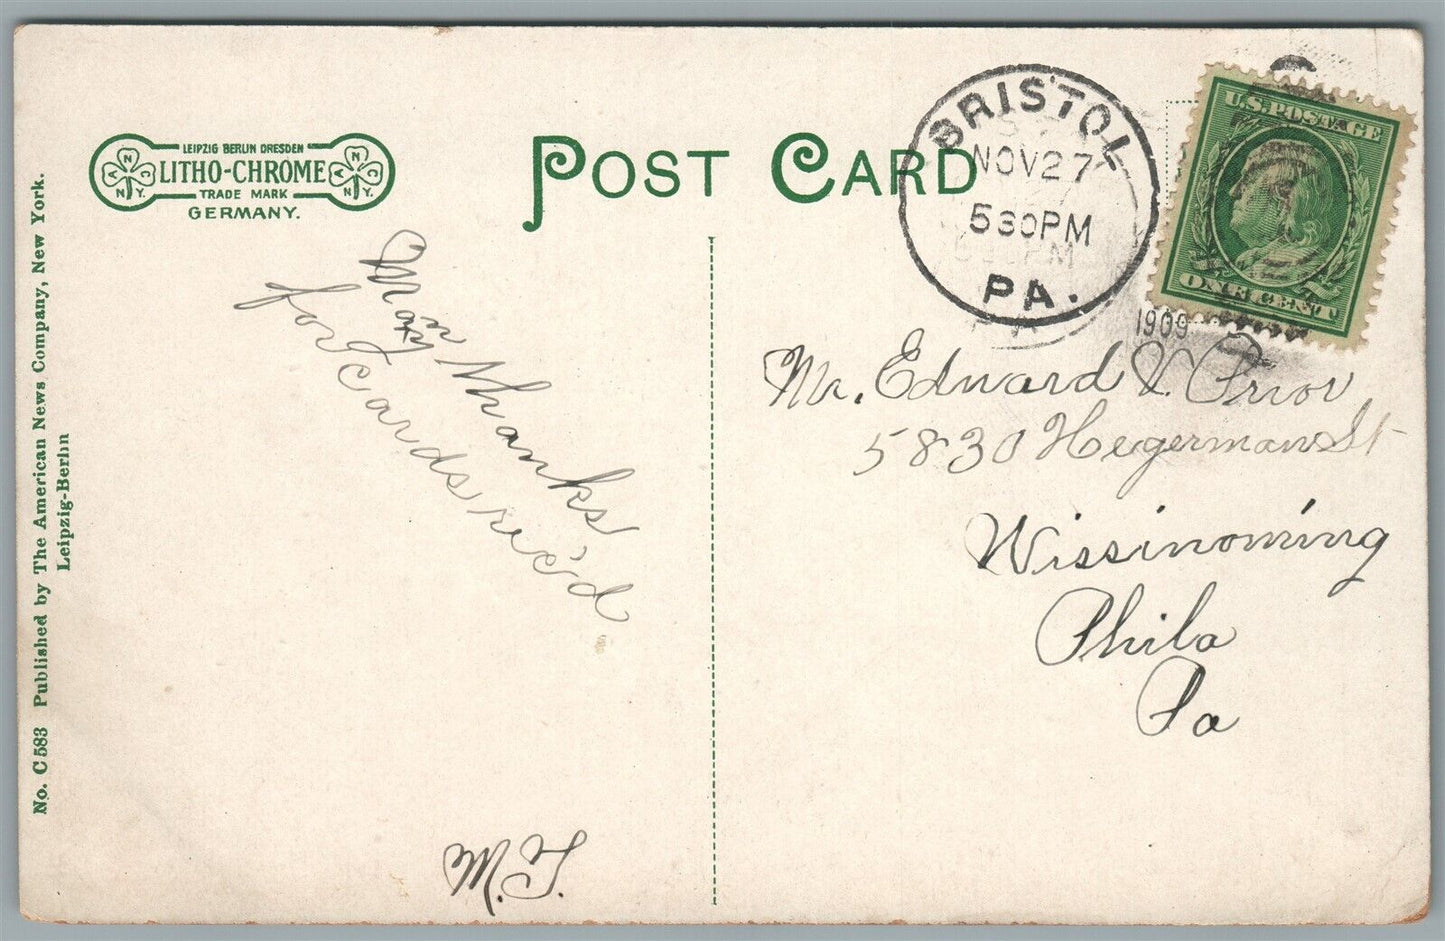 LEIPZIG BERLIN DRESDEN
LITHO-CHROME
TRADE MARK
GERMANY.
A N C
N Y.
A N C
N Y.
POST CARD
BRISTOL
NOV 27
530PM
PA.
1909
U.S. POSTAGE
ONE CENT
No. C 583 Published by The American News Company, New York.
Leipzig-Berlin
Many thanks
for cards rec'd.
Mr. Edward V. Prior
5830 Hegerman St
Wissinoming
Phila
Pa